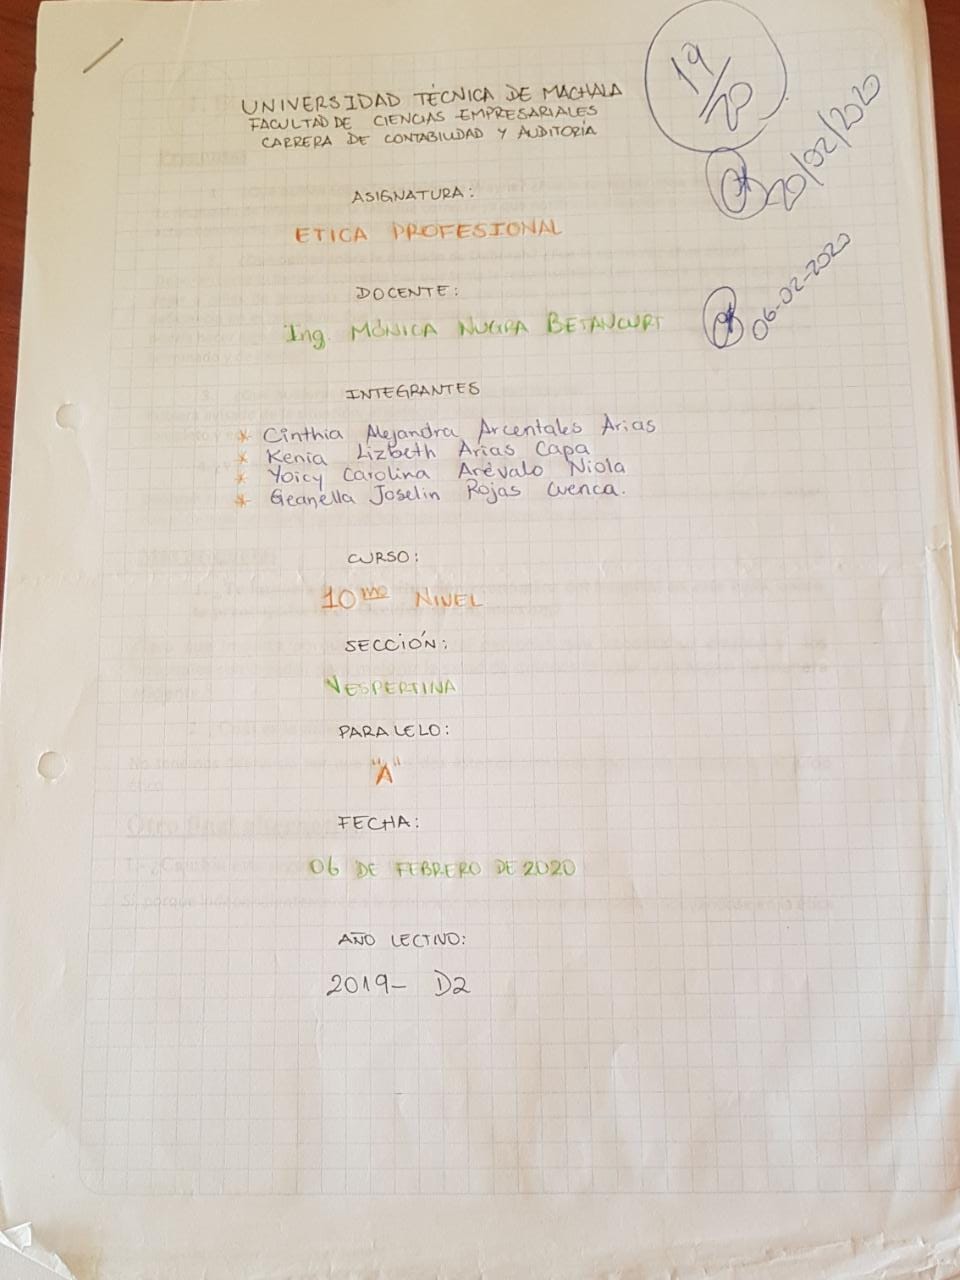 UNIVERSIDAD TÉCNICA DE MACHALA
FACULTAD DE CIENCIAS EMPRESARIALES
CARRERA DE CONTABILIDAD Y AUDITORÍA
19/20
20/02/2020
ASIGNATURA:
ETICA PROFESIONAL
DOCENTE:
Ing. MÓNICA NUGRA BETANCURT
06-02-2020
INTEGRANTES
* Cinthia Alejandra Arcentales Arias
* Kenia Lizbeth Arias Capa
* Yoicy Carolina Arévalo Niola
* Geanella Joselin Rojas Cuenca.
CURSO:
10mo NIVEL
SECCIÓN:
VESPERTINA
PARALELO:
"A"
FECHA:
06 DE FEBRERO DE 2020
AÑO LECTIVO:
2019- D2